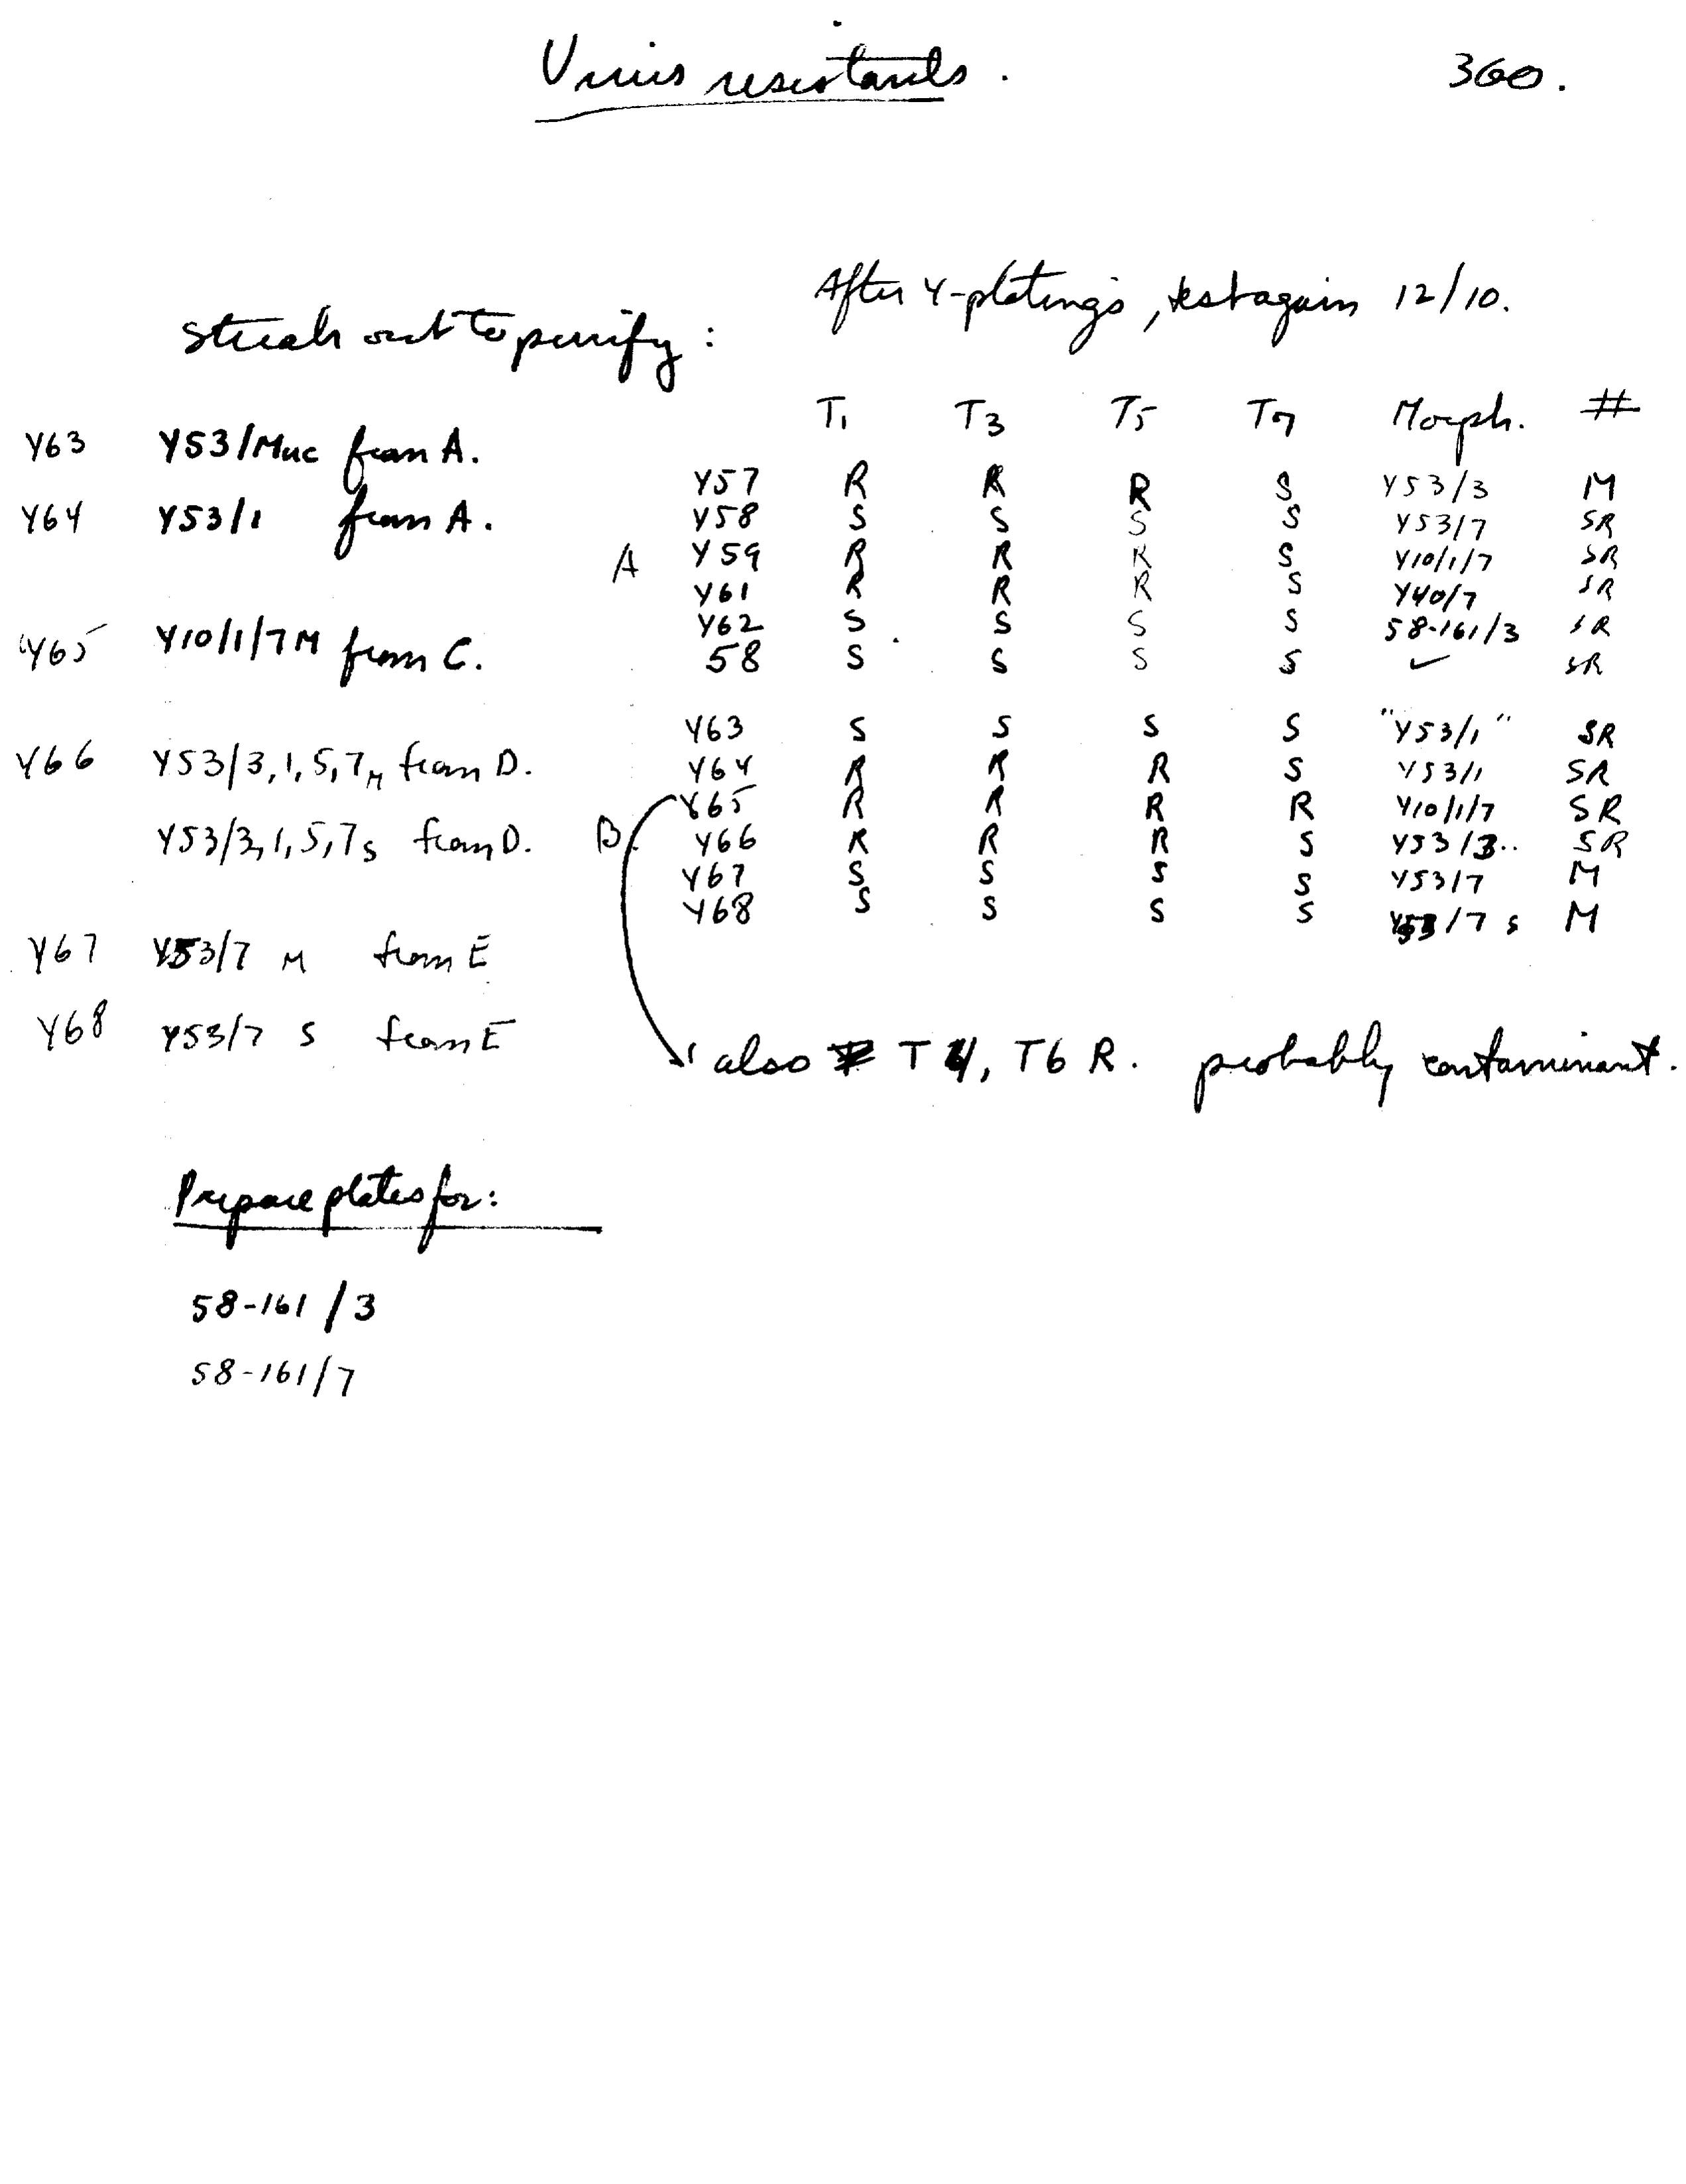 Virus resistants.
360.
Streak out to purify:
Y63 Y53/Muc from A.
Y64 Y53/1 from A.
Y65 Y10/1/7 M from C.
Y66 Y53/3,1,5,7 M from D.
Y53/3,1,5,7 S from D.
Y67 Y53/7 M from E
Y68 Y53/7 S from E
After Y-platings, test again 12/10.
T1 T3 T5 T7 Morph. #
Y57 R R R S Y53/3 M
Y58 S S S S Y53/7 SR
A Y59 R R R S Y10/1/7 SR
Y61 R R R S Y40/7 SR
Y62 S S S S 58-161/3 SR
58 S S S S ✓ SR
Y63 S S S S "Y53/1" SR
Y64 R R R S Y53/1 SR
Y65 R R R R Y10/1/7 SR
B. Y66 R R R S Y53/3.. SR
Y67 S S S S Y53/7 M
Y68 S S S S Y53/7 S M
also T4, T6 R. probably contaminant.
Prepare plates for:
58-161/3
58-161/7